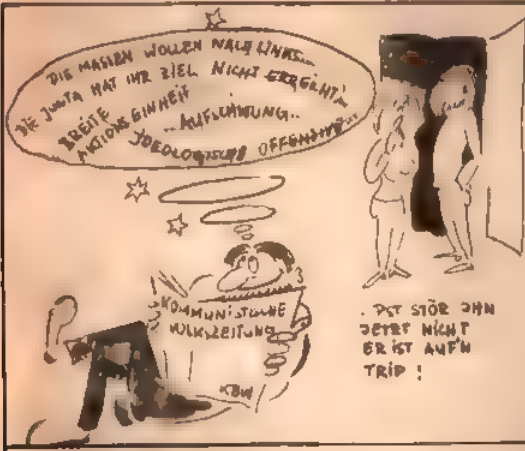 DIE MASSEN WOLLEN NACH LINKS...
DIE JUNTA HAT IHR ZIEL NICHT ERREICHT!
BREITE
AKTIONSEINHEIT
..AUFSCHWUNG..
IDEOLOGISCHE OFFENSIVE...
KOMMUNISTISCHE
VOLKSZEITUNG
KBW
. PST STÖR IHN
JETZT NICHT
ER IST AUF'N
TRIP !